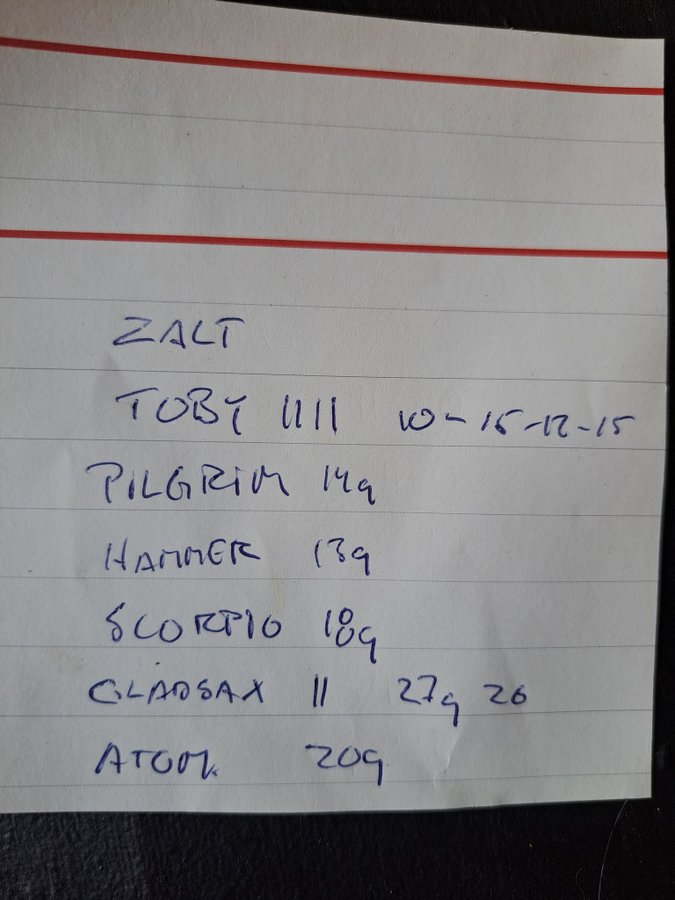 ZALT
TOBY IIII 10-15-12-15
PILGRIM 14g
HAMMER 13g
SCORPIO 18g
GLADSAX II 27g 20
ATOM. 20g